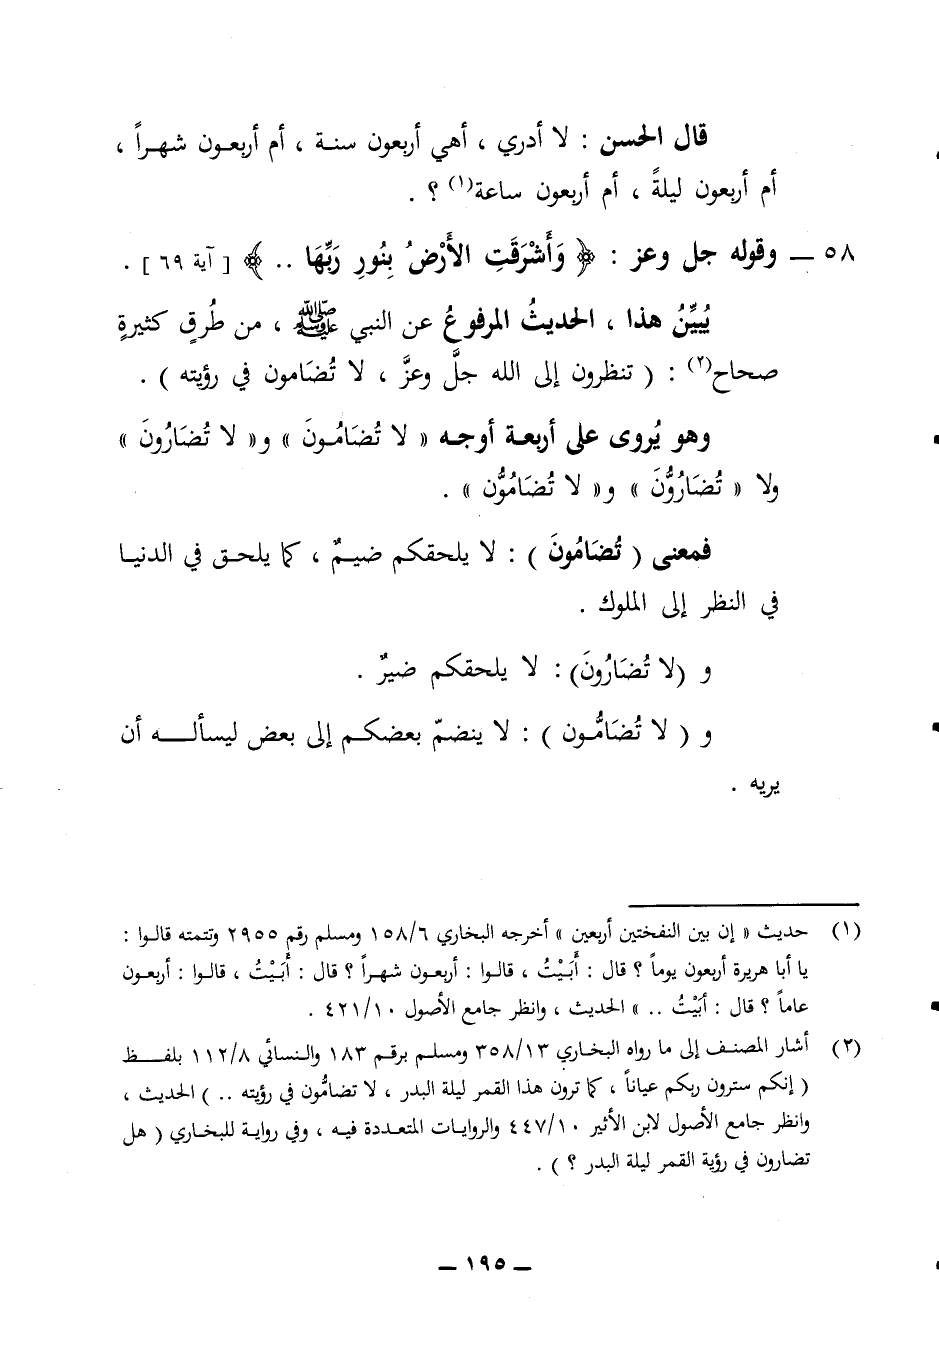 قال الحسن : لا أدري ، أهي أربعون سنة ، أم أربعون شهراً ،
أم أربعون ليلةً ، أم أربعون ساعة(١) ؟ .
٥٨ ــ وقوله جل وعز : ﴿ وَأَشْرَقَتِ الأَرْضُ بِنُورِ رَبِّهَا .. ﴾ [ آية ٦٩ ] .
يُبيِّنُ هذا ، الحديثُ المرفوعُ عن النبي ﷺ ، من طُرقٍ كثيرةٍ
صحاح(٢) : ( تنظرون إلى الله جلَّ وعزَّ ، لا تُضَامون في رؤيته ) .
وهو يُروى على أربعة أوجه « لا تُضَامُونَ » و« لا تُضَارُونَ »
ولا « تُضَارُّونَ » و« لا تُضَامُّون » .
فمعنى ( تُضَامُونَ ) : لا يلحقكم ضيمٌ ، كما يلحق في الدنيا
في النظر إلى الملوك .
و (لا تُضَارُونَ) : لا يلحقكم ضيرٌ .
و ( لا تُضَامُّون ) : لا ينضمّ بعضكم إلى بعض ليسأله أن
يريه .
(١) حديث « إن بين النفختين أربعين » أخرجه البخاري ١٥٨/٦ ومسلم رقم ٢٩٥٥ وتتمته قالوا :
يا أبا هريرة أربعون يوماً ؟ قال : أَبَيْتُ ، قالوا : أربعون شهراً ؟ قال : أَبَيْتُ ، قالوا : أربعون
عاماً ؟ قال : أبَيْتُ .. » الحديث ، وانظر جامع الأصول ٤٢١/١٠ .
(٢) أشار المصنف إلى ما رواه البخاري ٣٥٨/١٣ ومسلم برقم ١٨٣ والنسائي ١١٢/٨ بلفظ
( إنكم سترون ربكم عياناً ، كما ترون هذا القمر ليلة البدر ، لا تضامُّون في رؤيته .. ) الحديث ،
وانظر جامع الأصول لابن الأثير ٤٤٧/١٠ والروايات المتعددة فيه ، وفي رواية للبخاري ( هل
تضارون في رؤية القمر ليلة البدر ؟ ) .
ــ ١٩٥ ــ